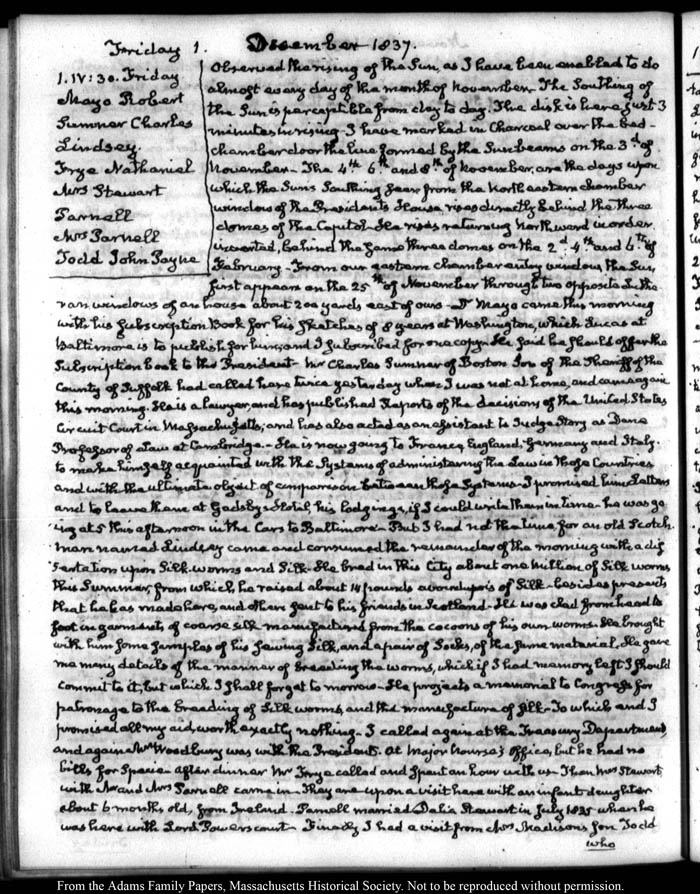 Friday 1. December 1837.
1. IV:30. Friday
Mayo Robert
Sumner Charles
Lindsey.
Frye Nathaniel
Mrs Stewart
Parnell
Mrs Parnell
Todd John Payne
Observed the rising of the Sun, as I have been enabled to do
almost every day of the month of November. The Southing of
the Sun is perceptible from day to day. The disk is here just 3
minutes in rising. I have marked in Charcoal over the bed-
chamber door the line formed by the Sunbeams on the 3d of
November. The 4th 6th and 8th of November, are the days upon
which the Sun's Southing seen from the North eastern chamber
window of the President's House rises directly behind the three
domes of the Capitol. He rises returning Northward in order
inverted, behind the same three domes on the 2d 4th and 6th of
February. From our eastern chamber entry window, the Sun,
first appears on the 25th of November through two opposite
windows of an house about 200 yards east of ours. Dr Mayo came this morning
with his Subscription Book for his Sketches of 8 years at Washington, which Lucas at
Baltimore is to publish for him; and I subscribed for one copy. He said he should offer the
Subscription book to the President. Mr Charles Sumner of Boston Son of the Sheriff of the
County of Suffolk had called here twice yesterday when I was not at home, and came again
this morning. He is a lawyer, and has published Reports of the decisions of the United States
Circuit Court in Massachusetts; and has also acted as an assistant to Judge Story as Dane
Professor of Law at Cambridge. He is now going to France, England, Germany and Italy.
to make himself acquainted with the Systems of administering the Law in those Countries
and with the ultimate object of comparison between those Systems. I promised him Letters
and to leave them at Gadsby's Hotel, his lodgings, if I could write them in time. he was go
ing at 5 this afternoon in the Cars to Baltimore. But I had not the time for an old Scotch
man named Lindsay came and consumed the remainder of the morning with a dis
sertation upon Silk-worms and Silk. He bred in this City about one million of Silk worms
this Summer, from which he raised about 14 pounds avoirdupois of Silk. besides presents
that he has made here, and others sent to his friends in Scotland. He was clad from head to
foot in garments of coarse silk manufactured from the cocoons of his own worms. He brought
with him some samples of his sewing Silk, and a pair of Socks, of the same material. He gave
me many details of the manner of breeding the worms, which if I had memory left I should
commit to it, but which I shall forget to morrow. He projects a memorial to Congress for
patronage to the breeding of Silk worms, and the manufacture of Silk. To which end I
promised all my aid, worth exactly nothing. I called again at the Treasury Department,
and again Mr Woodbury was with the President. At Major Nourse's office, but he had no
bills for Specie. After dinner Mr Frye called and spent an hour with us. Then Mrs Stewart,
with Mr and Mrs Parnell came in. They are upon a visit here with an infant daughter
about 6 months old, from Ireland. Parnell married Delia Stewart in July 1835 when he
was here with Lord Powerscourt. Finally I had a visit from Mrs Madison's Son Todd
who
From the Adams Family Papers, Massachusetts Historical Society. Not to be reproduced without permission.